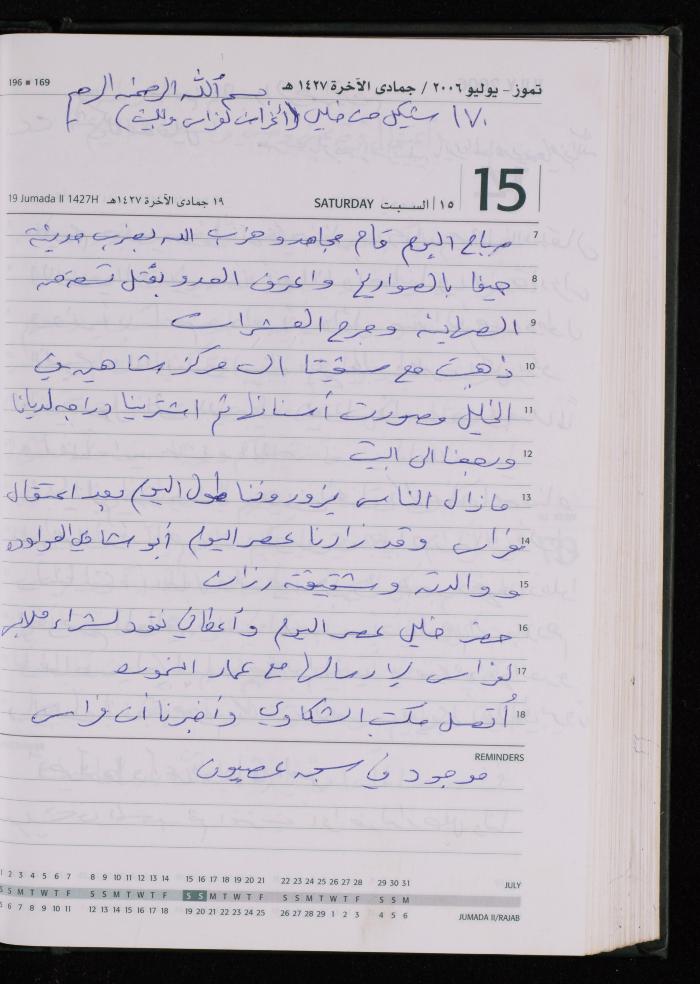 196 ■ 169
تموز - يوليو ٢٠٠٦ / جمادى الآخرة ١٤٢٧ هـ
بسم الله الرحمن الرحيم
١٧٠ شيكل من خليل (أغراض لفراس وللبيت)
15
19 Jumada II 1427H ١٩ جمادى الآخرة ١٤٢٧هـ SATURDAY السبت | ١٥
7 صباح اليوم قام مجاهدو حزب الله بضرب مدينة
8 حيفا بالصواريخ واعترف العدو بقتل تسعة من
9 الصهاينة وجرح العشرات
10 ذهبت مع سقيتا الى مركز شاهين في
11 الخليل وصورت أسنانها ثم اشترينا دراجه لديانا
12 ورجعنا الى البيت
13 مازال الناس يزوروننا طول اليوم بعد اعتقال
14 فراس وقد زارنا عصر اليوم أبو شادي
15 ووالدته وشقيقته رزان
16 حضر خليل عصر اليوم وأعطاني نقود لشراء ملابس
17 لفراس لإرسالها مع عمار
18 أتصل مكتب الشكاوي وأخبرنا أن فراس
REMINDERS
موجود في سجن عصيون
1 2 3 4 5 6 7 8 9 10 11 12 13 14 15 16 17 18 19 20 21 22 23 24 25 26 27 28 29 30 31 JULY
S S M T W T F S S M T W T F S S M T W T F S S M T W T F S S M
5 6 7 8 9 10 11 12 13 14 15 16 17 18 19 20 21 22 23 24 25 26 27 28 29 1 2 3 4 5 6 JUMADA II/RAJAB